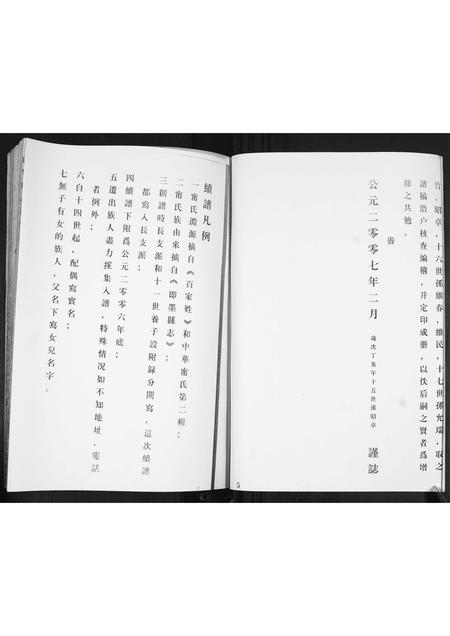 竹、昭卓，十六世孫維春、維民，十七世孫允瑞，取之
譜稿沿户核查編橃，并定印成册，以佚后嗣之賢者爲增
修之共勉。
旹
公元二零零七年二月 歲次丁亥年十五世孫昭卓 謹誌
5
續譜凡例
一甯氏淵源摘自《百家姓》和中華甯氏第二輯；
二甯氏族由來摘自《即墨縣志》；
三創譜時長支派和十一世養子設附录分開寫，這次續譜
都寫入長支派；
四續譜下限爲公元二零零六年底；
五遷出族人盡力採集入譜，特殊情况如不知地址、電話
者例外；
六自十四世起，配偶寫實名；
七無子有女的族人，父名下寫女兒名字。